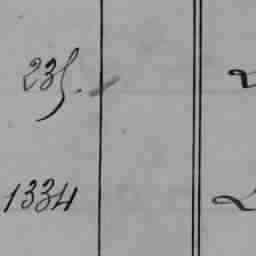 235.
1334